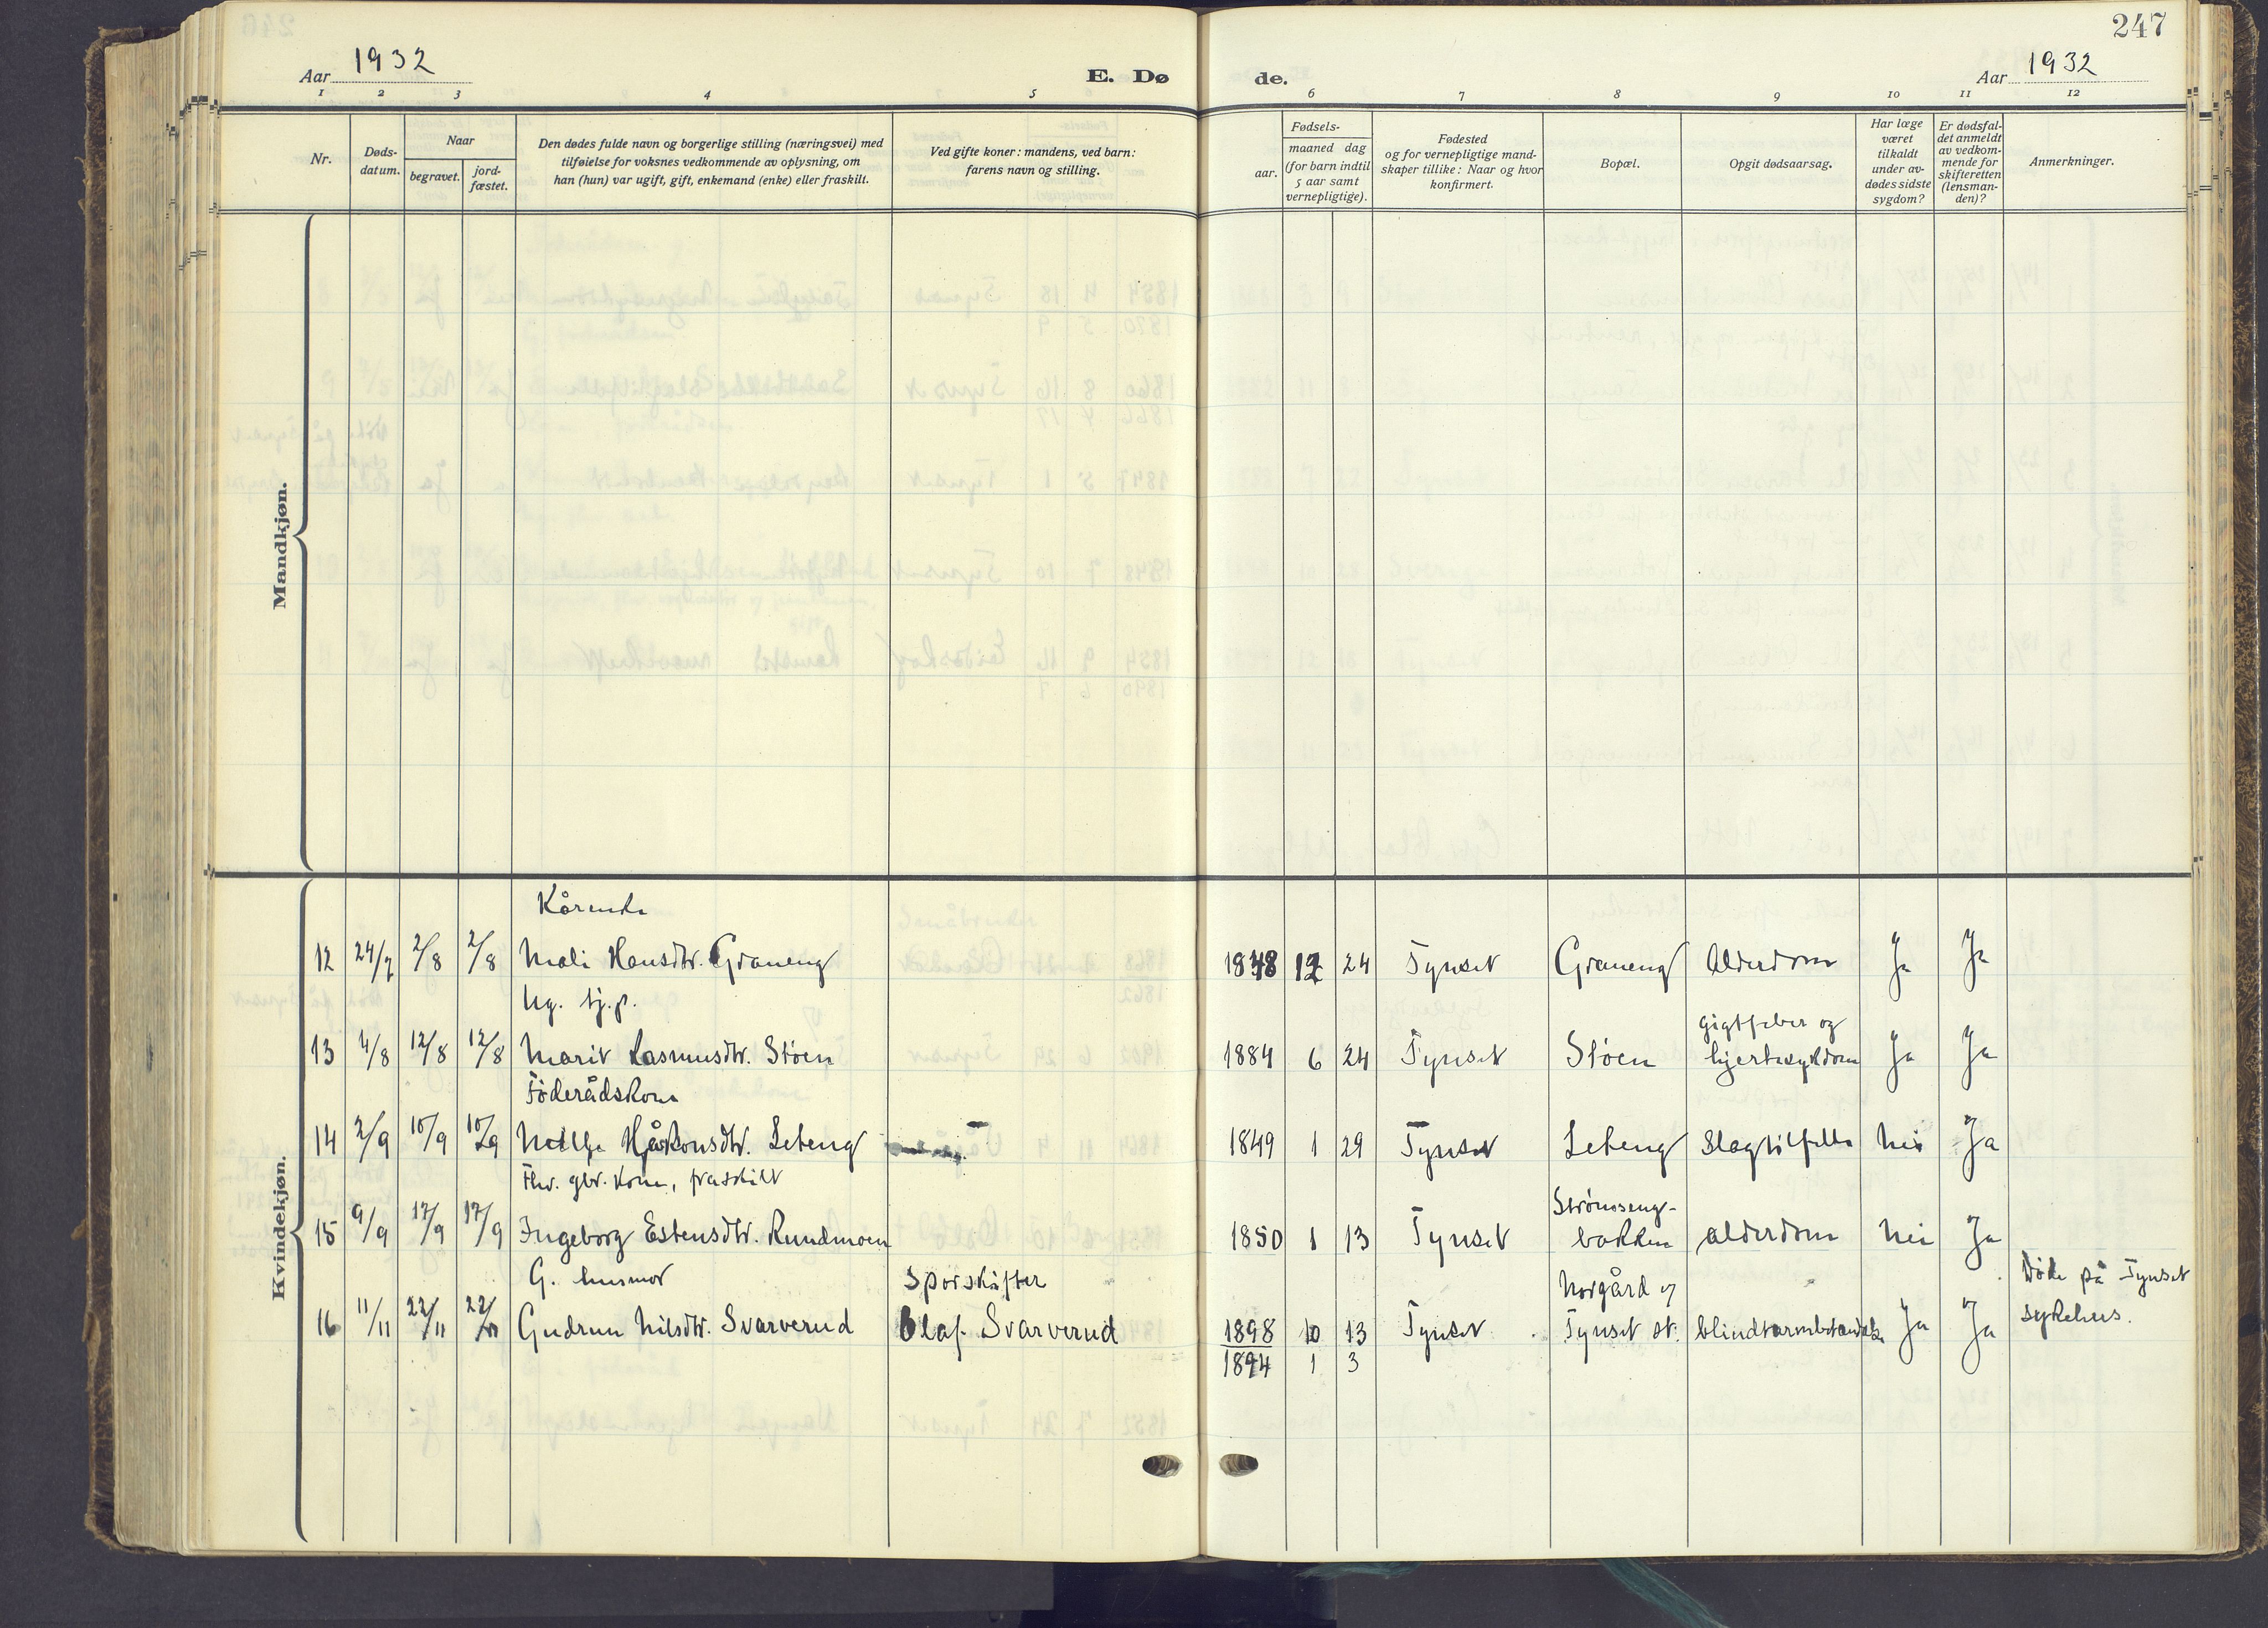 247
Aar 1932
E. Dø
de.
Aar 1932
1 2 3 4 5 6 7 8 9 10 11 12
Nr.
Døds-
datum.
Naar
begravet.
jord-
fæstet.
Den dødes fulde navn og borgerlige stilling (næringsvei) med
tilføielse for voksnes vedkommende av oplysning, om
han (hun) var ugift, gift, enkemand (enke) eller fraskilt.
Ved gifte koner: mandens, ved barn:
farens navn og stilling.
aar.
Fødsels-
maaned dag
(for barn indtil
5 aar samt
vernepligtige).
Fødested
og for vernepligtige mand-
skaper tillike: Naar og hvor
konfirmert.
Bopæl.
Opgit dødsaarsag.
Har læge
været
tilkaldt
under av-
dødes sidste
sygdom?
Er dødsfal-
det anmeldt
av vedkom-
mende for
skifteretten
(lensman-
den)?
Anmerkninger.
Mandkjøn.
Kvindekjøn.
Kårenke
12 24/7 2/8 2/8 Mali Hansdtr. Graneng 1848 12 24 Tynset Graneng Alderdom Ja Ja
Ug. tj.p. gigtfeber og
13 4/8 12/8 12/8 Marit Rasmusdtr. Støen 1884 6 24 Tynset Støen hjertesykdom Ja Ja
Føderådskone
14 2/9 10/9 10/9 Håkonsdtr. Leteng 1849 1 29 Tynset Leteng Slagtilfelle Nei Ja
Fhv. gbr. kone, fraskilt Strømseng-
15 9/9 17/9 17/9 Ingeborg Estensdtr. Rundmoen 1850 1 13 Tynset bakken alderdom Nei Ja
G. husmor Sporskifter Norgård og Døde på Tynset
16 11/11 22/11 22/11 Gudrun Nilsdtr. Svarverud Olaf Svarverud 1898 10 13 Tynset Tynset st. blindtarmbetendelse Ja Ja sykehus.
1894 1 3